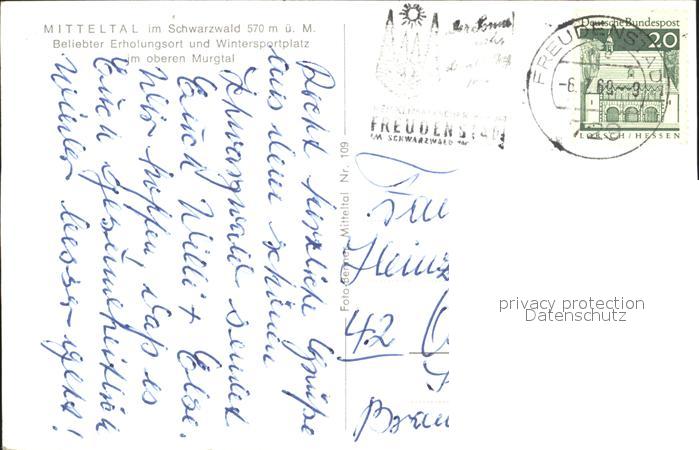 MITTELTAL im Schwarzwald 570 m ü. M.
Beliebter Erholungsort und Wintersportplatz
im oberen Murgtal
Recht herzliche Grüße
aus dem schönen
Schwarzwald sendet
Euch Willi + Else.
Wir hoffen, daß es
Euch gesundheitlich
wieder besser geht!
Mitteltal Nr. 109
FREUDENSTADT
IM SCHWARZWALD
FREUDENSTADT
Deutsche Bundespost
20
LORSCH/HESSEN
Heinz
42
privacy protection
Datenschutz